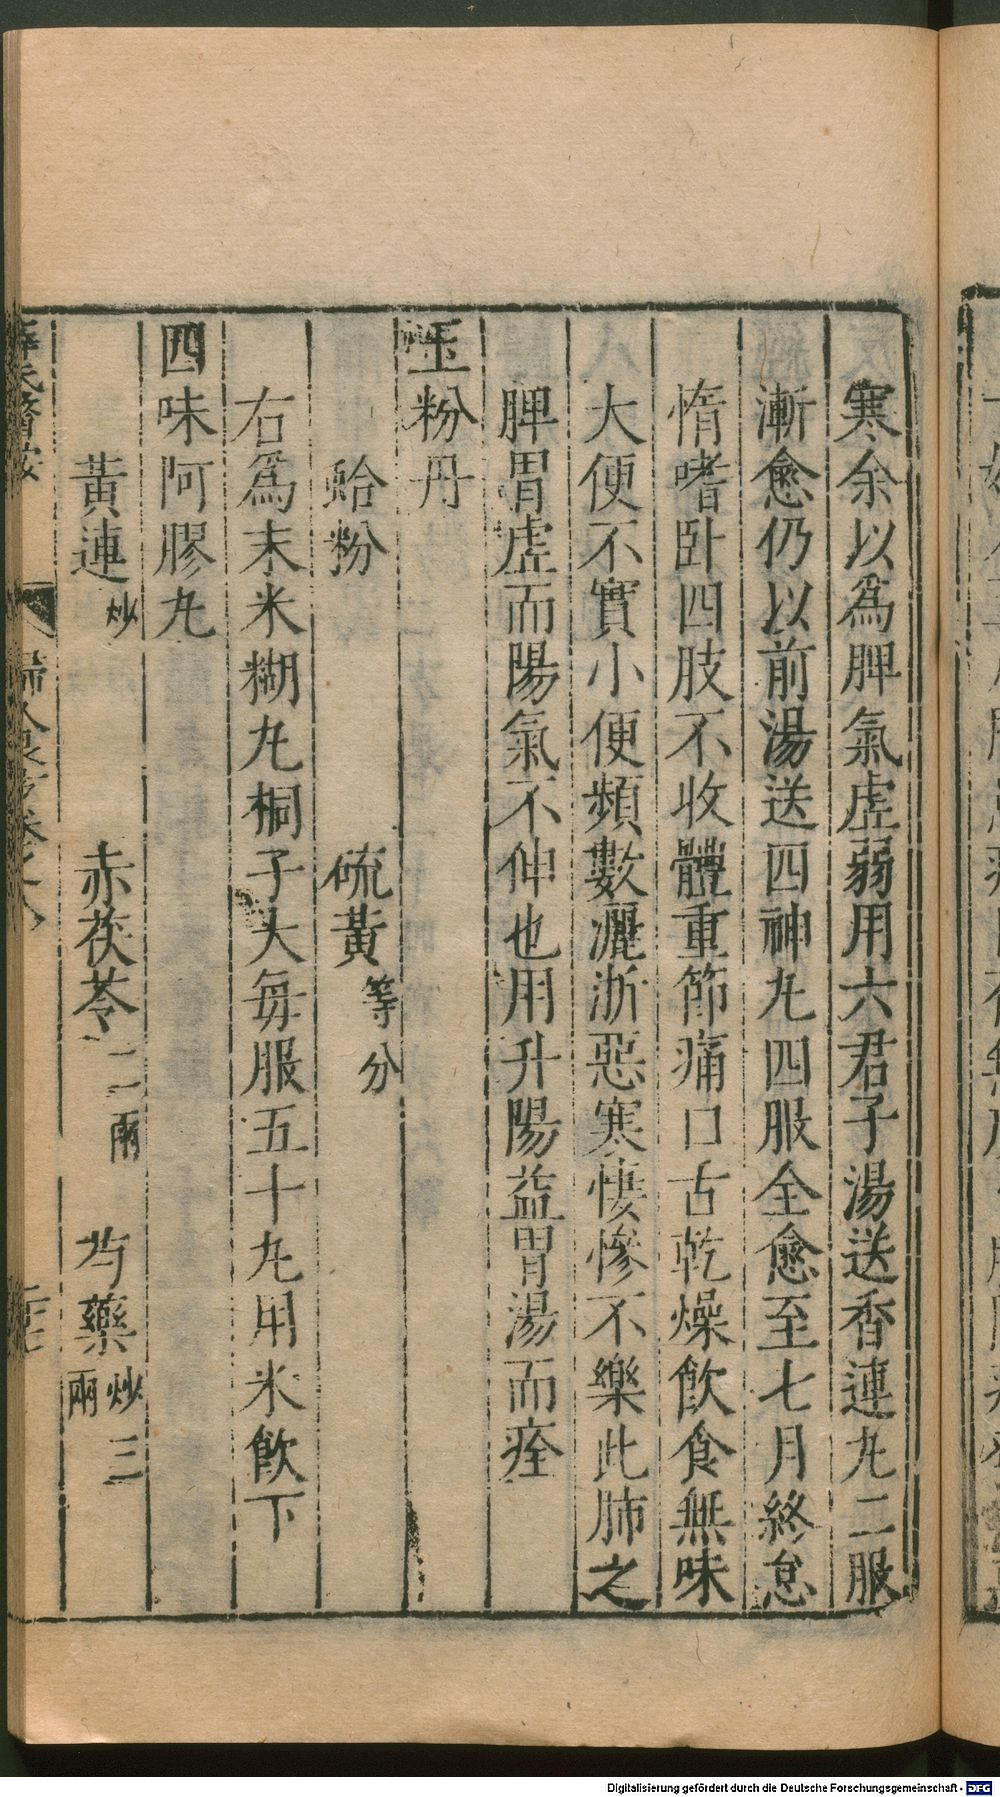 寒余以爲脾氣虛弱用六君子湯送香連丸二服
漸愈仍以前湯送四神丸四服全愈至七月終怠
惰嗜卧四肢不收體重節痛口舌乾燥飲食無味
大便不實小便頻數灑淅惡寒悽慘不樂此肺之
脾胃虛而陽氣不伸也用升陽益胃湯而痊
玉粉丹
蛤粉 硫黃等分
右爲末米糊丸桐子大每服五十丸用米飲下
四味阿膠丸
黃連炒 赤茯苓二兩 芍藥炒三兩
薛氏醫按 婦人良方卷之八
Digitalisierung gefördert durch die Deutsche Forschungsgemeinschaft - DFG